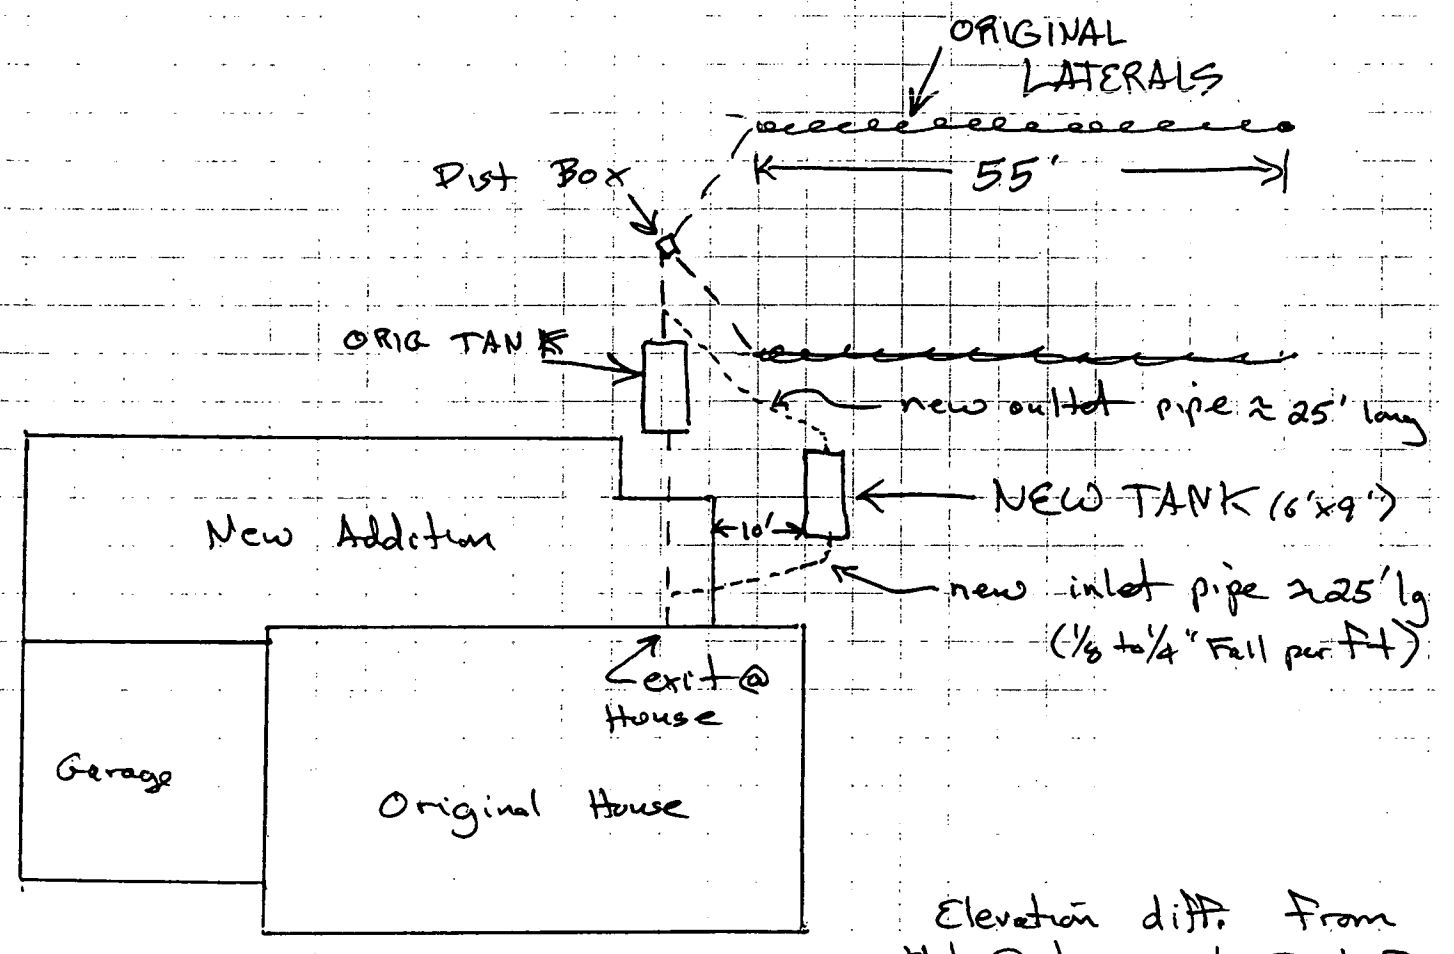 ORIGINAL
LATERALS
55'
Dist Box
ORIG TANK
new outlet pipe ≈ 25' long
NEW TANK (6'x9')
10'
New Addition
new inlet pipe ≈25' lg
(1/8 to 1/4" Fall per Ft)
exit @
House
Garage
Original House
Elevation diff. From